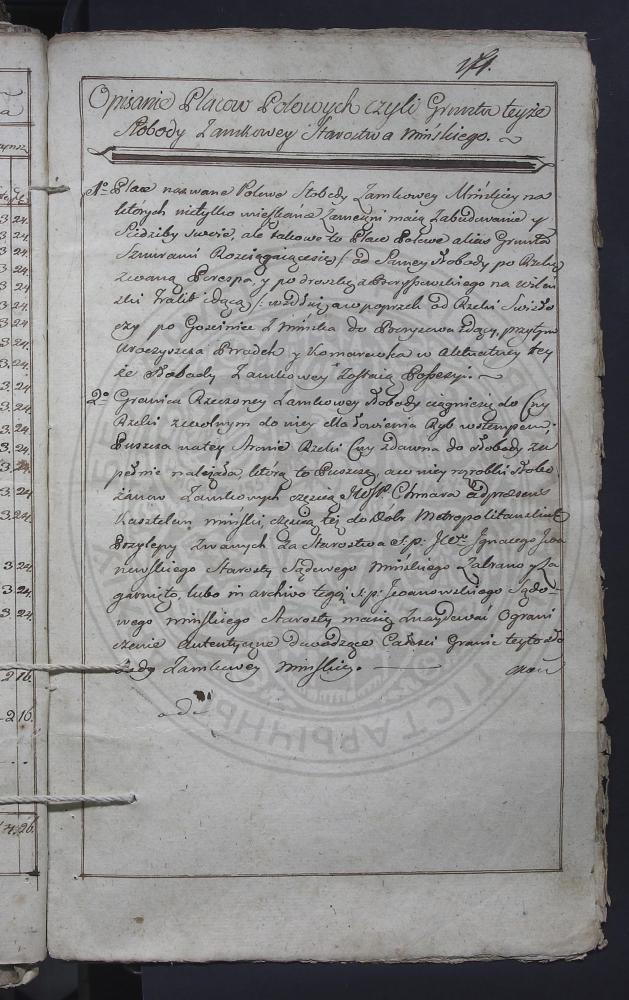 171.
Opisanie Placow Polowych czyli Gruntu teyże
Słobody Zamkowey Starostwa Mińskiego.
1º Place nazwane Polowe Słobody Zamkowey Mińskiey na
których nietylko mieszkanie Zamczyni maią Zabudowanie y
Siedziby swoie, ale takowe to Place Polowe alias Grunta
Sznurami Rozciągaiącesię /: od Samey Słobody po Rzekę
zwaną Perespa, y po drożkę z Borysowskiego na Wileń
ski Trakt idącą :/ wszdłuż, a w poprzek od Rzeki Swisło
czy po Gosciniec z Mińska do Borysowa idący, przytym
Uroczyszcza Brodek y Komarowka w aktualney tey
że Słobody Zamkowey Zostaią Possessyi.
2º Granica Rzeczoney Zamkowey Słobody ciągnicsię do Cny
Rzeki z wolnym do niey dla Łowienia Ryb wstempem.
Puszcza na tey Stronie Rzeki Cny zdawna do Słobody zu
pełnie należała, którą to Puszczę, a w niey wyrobki Słobo
żanow Zamkowych częścią JWJP. Chmara adpraesens
Kasztelan miński, częścią też do Dobr Metropolitanskich
Przylepy Zwanych za Starostwa s.p: JWo Ignacego Iwa
nowskiego Starosty Sądowego Mińskiego Zabrano y Za
garnięto, lubo in archivo tegoż s.p: Iwanowskiego Sądo-
wego mińskiego Starosty maią Znaydować Ograni
czenie autentyczne dowodzące Całości Granic teyto Sło
body Zamkowey Mińskiey.